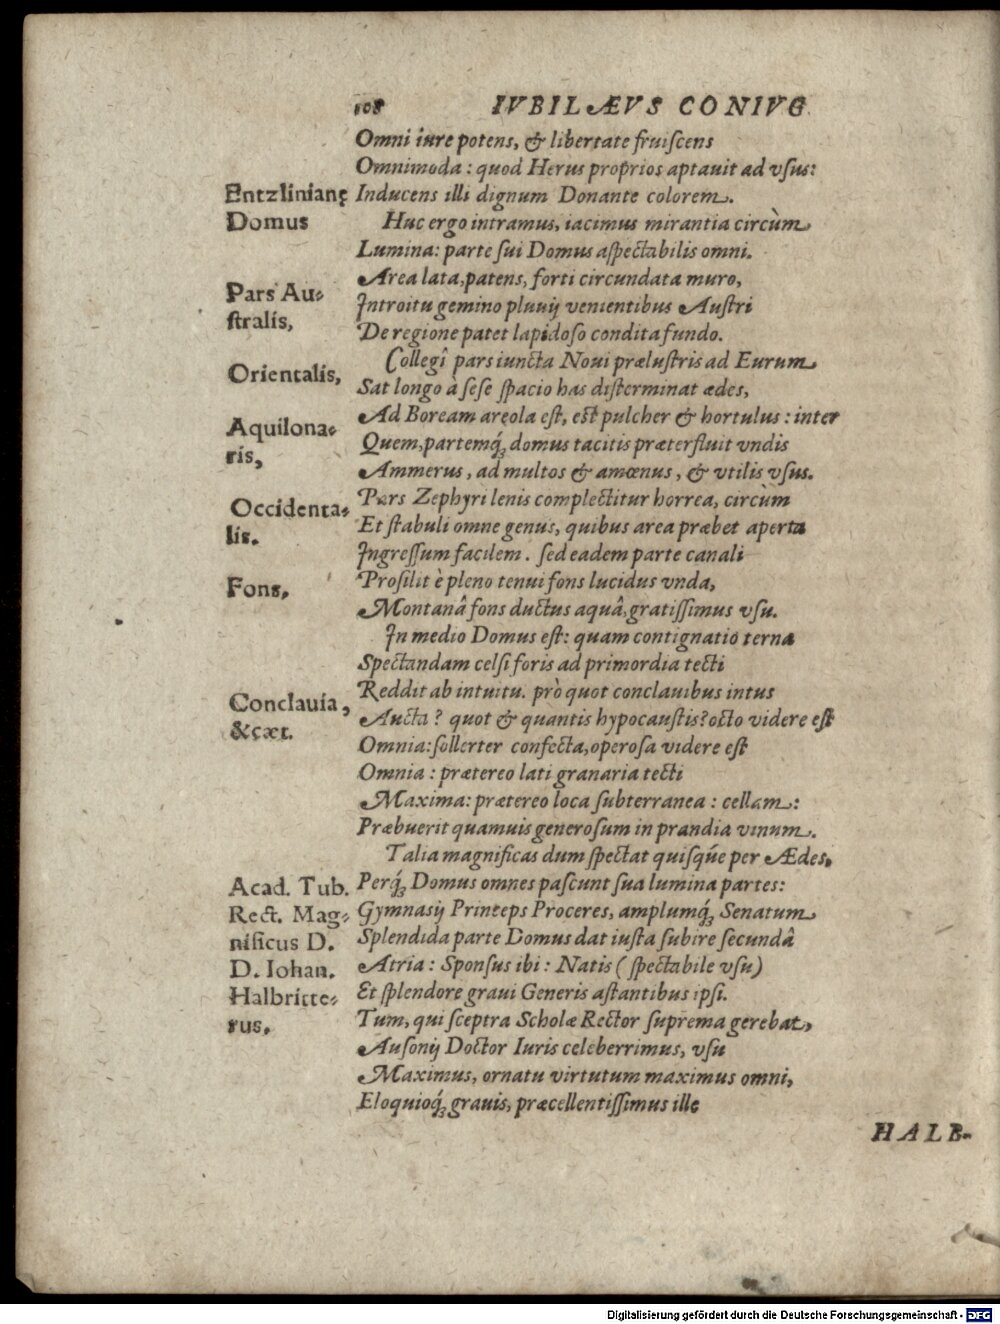 108 IVBILÆVS CONIVG.
Omni iure potens, & libertate fruiſcens
Omnimoda : quod Herus proprios aptauit ad vſus:
Entzlinianę Inducens illi dignum Donante colorem.
Domus Huc ergo intramus, iacimus mirantia circùm
Lumina: parte ſui Domus aſpectabilis omni.
Area lata, patens, forti circundata muro,
Pars Au-
Introitu gemino pluuij venientibus Auſtri
ſtralis,
De regione patet lapidoſo condita fundo.
Collegî pars iuncta Noui præluſtris ad Eurum
Orientalis,
Sat longo à ſeſe ſpacio has diſterminat ædes,
Ad Boream areola eſt, eſt pulcher & hortulus : inter
Aquilona-
Quem, partemq́; domus tacitis præterfluit vndis
ris,
Ammerus, ad multos & amœnus, & vtilis vſus.
Pars Zephyri lenis complectitur horrea, circùm
Occidenta-
Et ſtabuli omne genus, quibus area præbet aperta
lis.
Ingreſſum facilem. ſed eadem parte canali
Proſilit è pleno tenui fons lucidus vnda,
Fons,
Montanâ fons ductus aquâ, gratiſſimus vſu.
In medio Domus eſt: quam contignatio terna
Spectandam celſi foris ad primordia tecti
Reddit ab intuitu. prò quot conclauibus intus
Conclauia,
Aucta? quot & quantis hypocauſtis? octo videre eſt
&cæt.
Omnia: ſollerter confecta, operoſa videre eſt
Omnia : prætereo lati granaria tecti
Maxima: prætereo loca ſubterranea : cellam:
Præbuerit quamuis generoſum in prandia vinum.
Talia magnificas dum ſpectat quiſqúe per Ædes,
Acad. Tub. Perq́; Domus omnes paſcunt ſua lumina partes:
Rect. Mag- Gymnasij Princeps Proceres, amplumq́; Senatum
nificus D. Splendida parte Domus dat iuſta ſubire ſecundâ
D. Iohan. Atria : Sponſus ibi : Natis ( ſpectabile vſu)
Halbritte- Et ſplendore graui Generis aſtantibus ipſi.
rus, Tum, qui ſceptra Scholæ Rector ſuprema gerebat,
Auſonij Doctor Iuris celeberrimus, vſu
Maximus, ornatu virtutum maximus omni,
Eloquioq́; grauis, præcellentiſſimus ille
HALB-
Digitalisierung gefördert durch die Deutsche Forschungsgemeinschaft - DFG